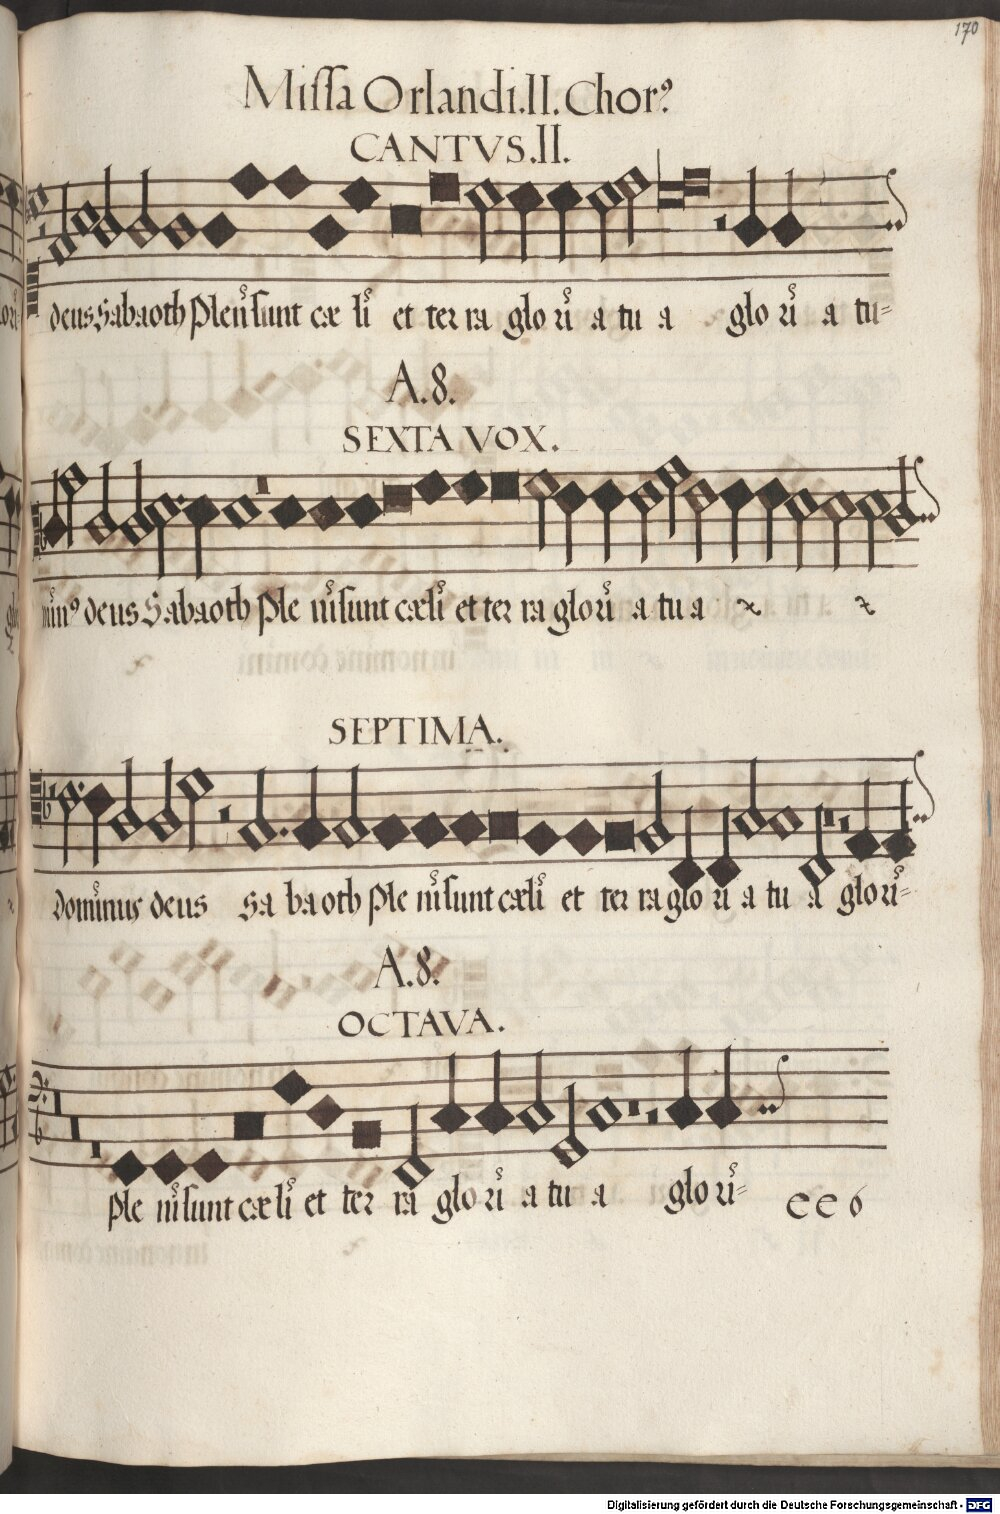 170
Missa Orlandi.II.Chor⁹
CANTVS.II.
deus Sabaoth Pleni sunt cæ li et ter ra glo ri a tu a glo ri a tu=
A.8.
SEXTA VOX.
min⁹ deus Sabaoth Ple ni sunt cæli et ter ra glo ri a tu a
SEPTIMA.
Dominus deus Sa ba oth Ple ni sunt cæli et ter ra glo ri a tu a glo ri=
A.8.
OCTAVA.
Ple ni sunt cæ li et ter ra glo ri a tu a glo ri=
ee 6
Digitalisierung gefördert durch die Deutsche Forschungsgemeinschaft - DFG